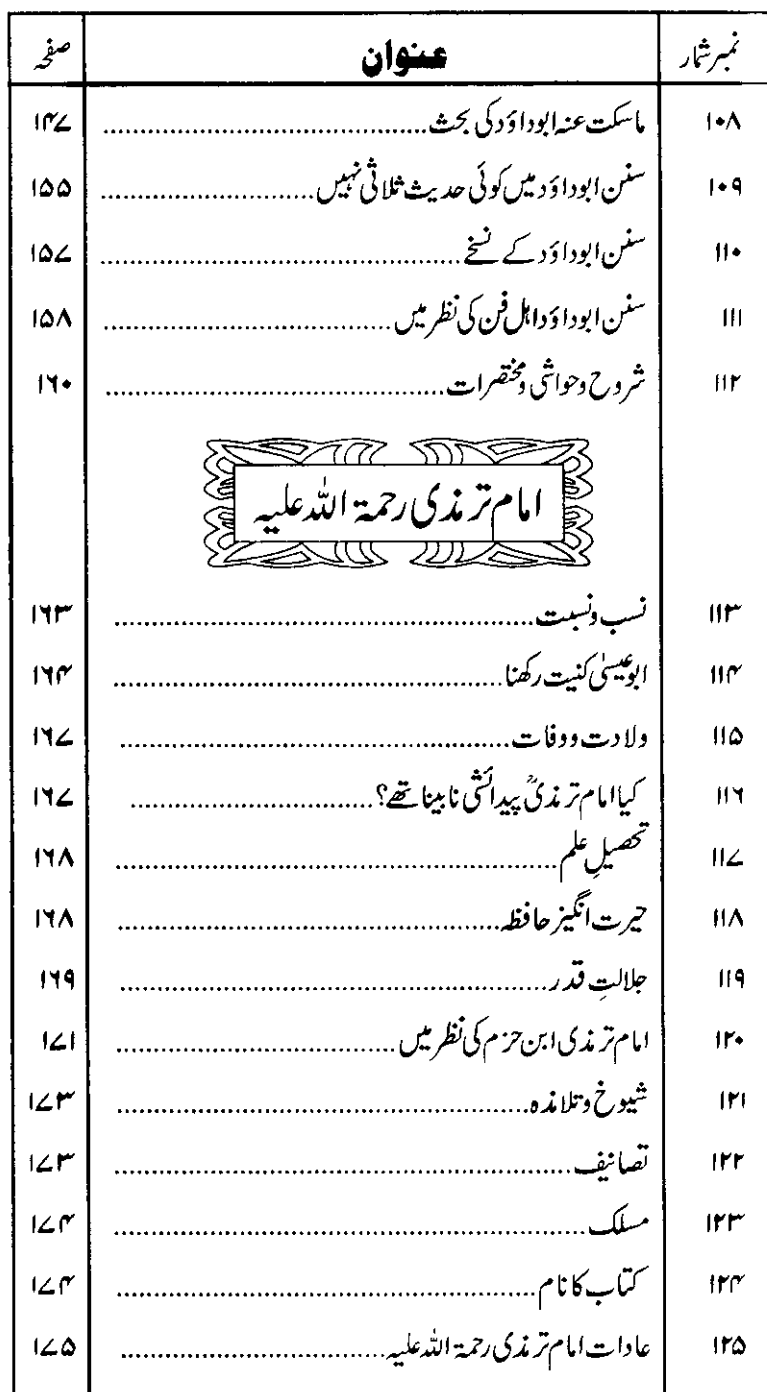 نمبر شمار عنوان صفحہ
۱۰۸ ماسکت عنہ ابوداؤد کی بحث........................ ۱۴۷
۱۰۹ سنن ابوداؤد میں کوئی حدیث ثلاثی نہیں........................ ۱۵۵
۱۱۰ سنن ابوداؤد کے نسخے........................ ۱۵۷
۱۱۱ سنن ابوداؤد اہل فن کی نظر میں........................ ۱۵۸
۱۱۲ شروح وحواشی ومختصرات........................ ۱۶۰
امام ترمذی رحمۃ اللہ علیہ
۱۱۳ نسب ونسبت........................ ۱۶۳
۱۱۴ ابوعیسیٰ کنیت رکھنا........................ ۱۶۴
۱۱۵ ولادت ووفات........................ ۱۶۷
۱۱۶ کیا امام ترمذیؒ پیدائشی نابینا تھے؟........................ ۱۶۷
۱۱۷ تحصیلِ علم........................ ۱۶۸
۱۱۸ حیرت انگیز حافظہ........................ ۱۶۸
۱۱۹ جلالتِ قدر........................ ۱۶۹
۱۲۰ امام ترمذی ابن حزم کی نظر میں........................ ۱۷۱
۱۲۱ شیوخ وتلامذہ........................ ۱۷۳
۱۲۲ تصانیف........................ ۱۷۳
۱۲۳ مسلک........................ ۱۷۴
۱۲۴ کتاب کا نام........................ ۱۷۴
۱۲۵ عادات امام ترمذی رحمۃ اللہ علیہ........................ ۱۷۵